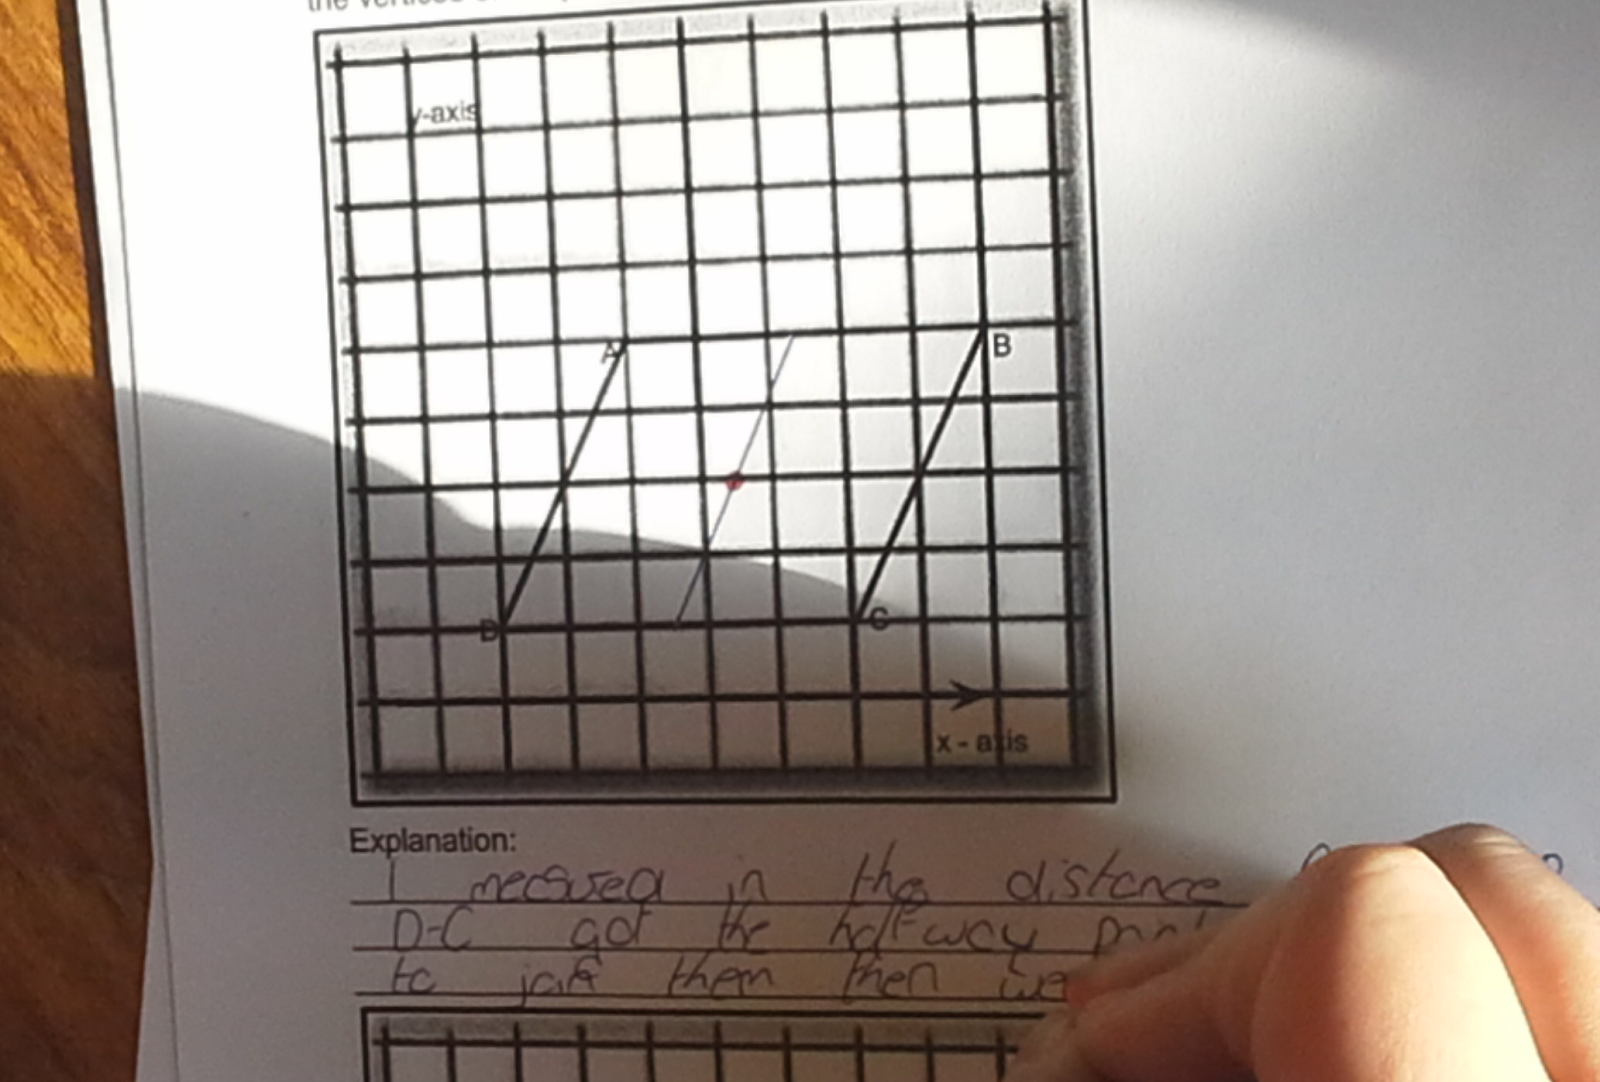 the vertices
y-axis
A
B
D
C
x - axis
Explanation:
I mecsured in the distance
D-C got the halfway point
to join them then we